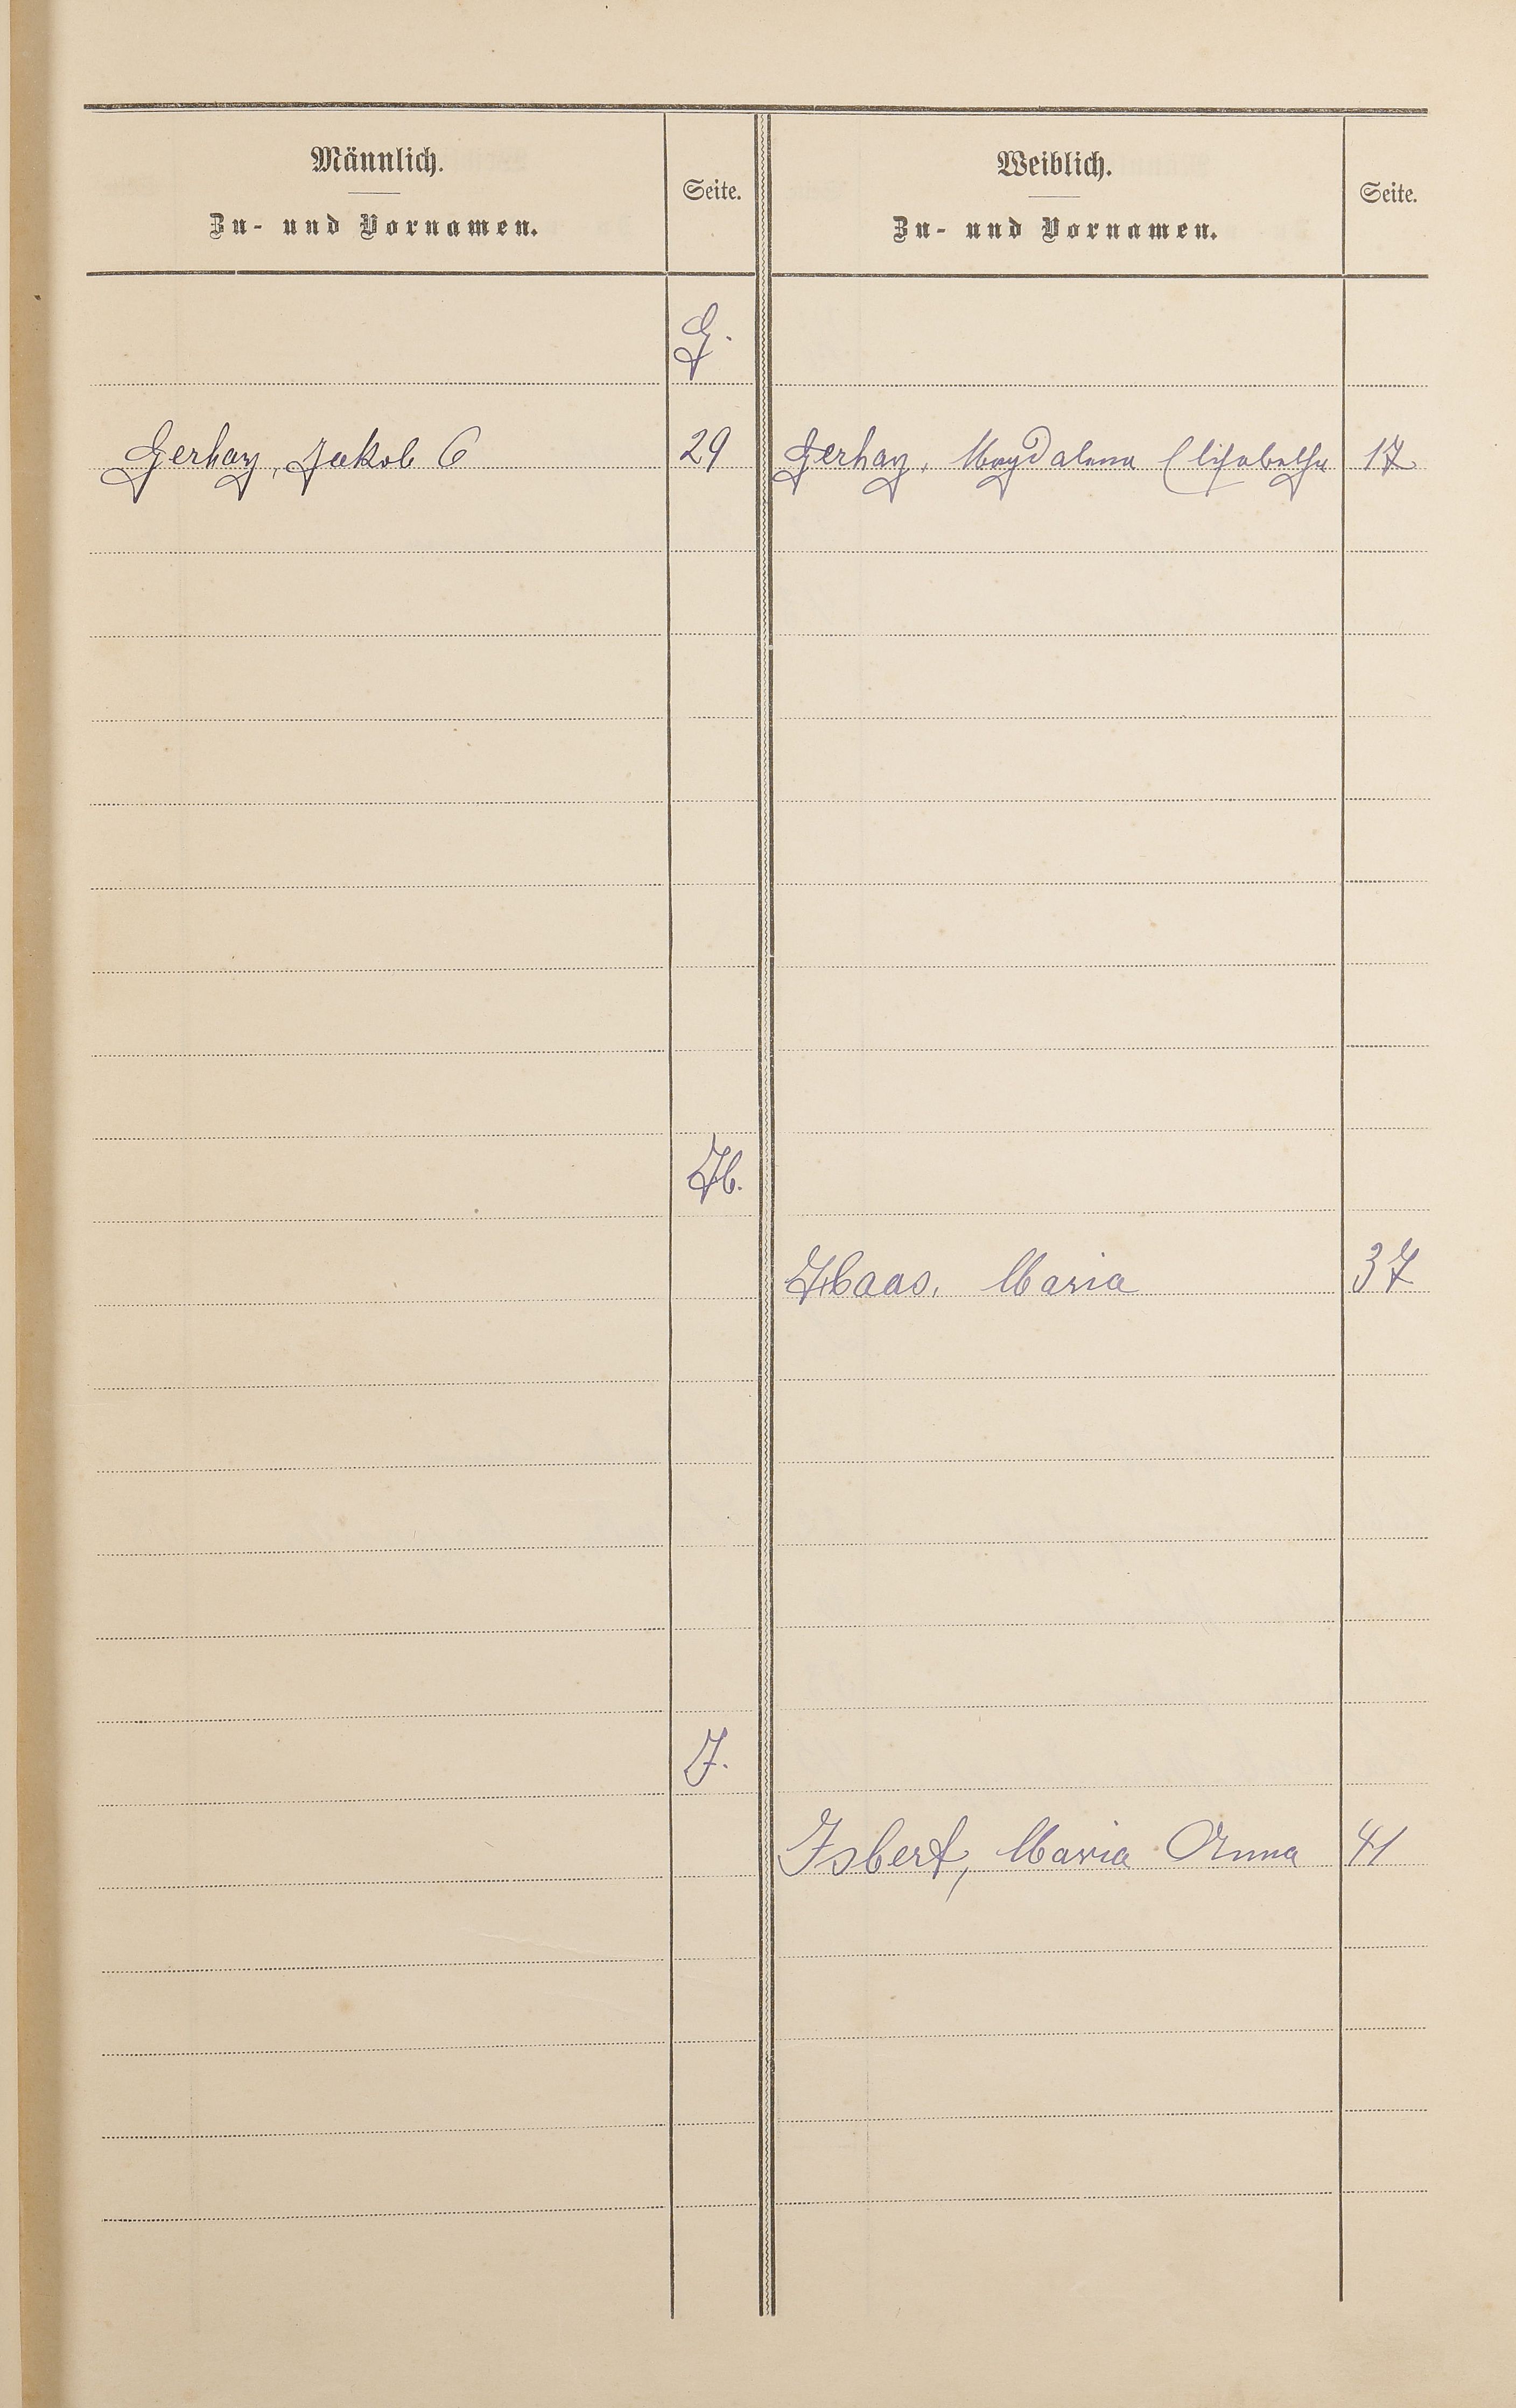 Männlich.
Zu- und Vornamen.
Seite.
Weiblich.
Zu- und Vornamen.
Seite.
G.
Gerhay, Jakob 6 29 Gerhay, Magdalena Elisabetha 17
H.
Haas, Maria 37
J.
Isbert, Maria Anna 41